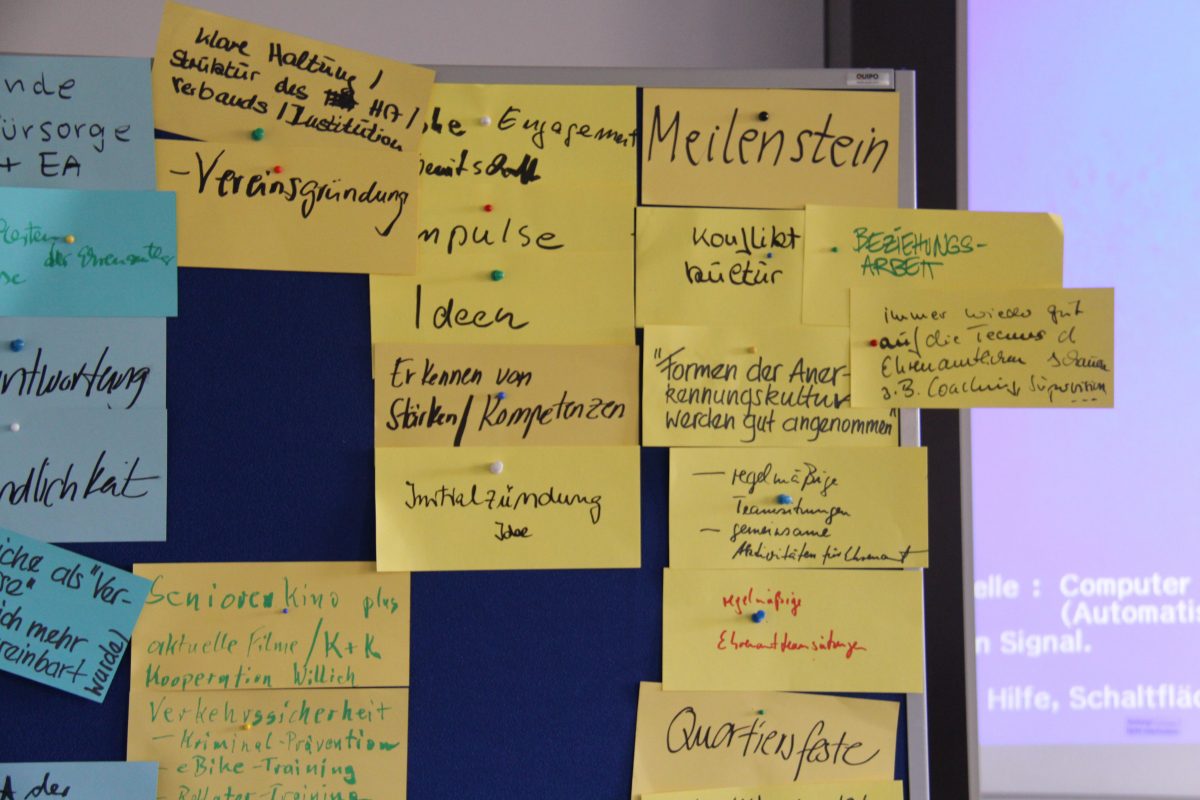 nde
ürsorge
+ EA
der Ehrenamtler
antwortung
ndlichkeit
iche als "Ver-
se"
ich mehr
reinbart
wurde)
A der
klare Haltung /
Struktur des HA /
Verbands / Institution
- Vereinsgründung
Engagement
mpulse
Ideen
Erkennen von
Stärken / Kompetenzen
Initialzündung
Idee
Seniorenkino plus
aktuelle Filme / K+K
Kooperation Willich
Verkehrssicherheit
- Kriminal-Prävention
- eBike-Training
- Rollator-Training
QUIPO
Meilenstein
Konflikt
kultur
BEZIEHUNGS-
ARBEIT
immer wieder gut
auf die Teams d
Ehrenamtlichen schauen
z.B. Coaching, Supervision ...
"Formen der Aner-
kennungskultur
werden gut angenommen"
- regelmäßige
Teamsitzungen
- gemeinsame
Aktivitäten für Ehrenamt
regelmäßige
Ehrenamtteamsitzungen
Quartiersfeste
elle : Computer
(Automatis
n Signal.
Hilfe, Schaltfläc